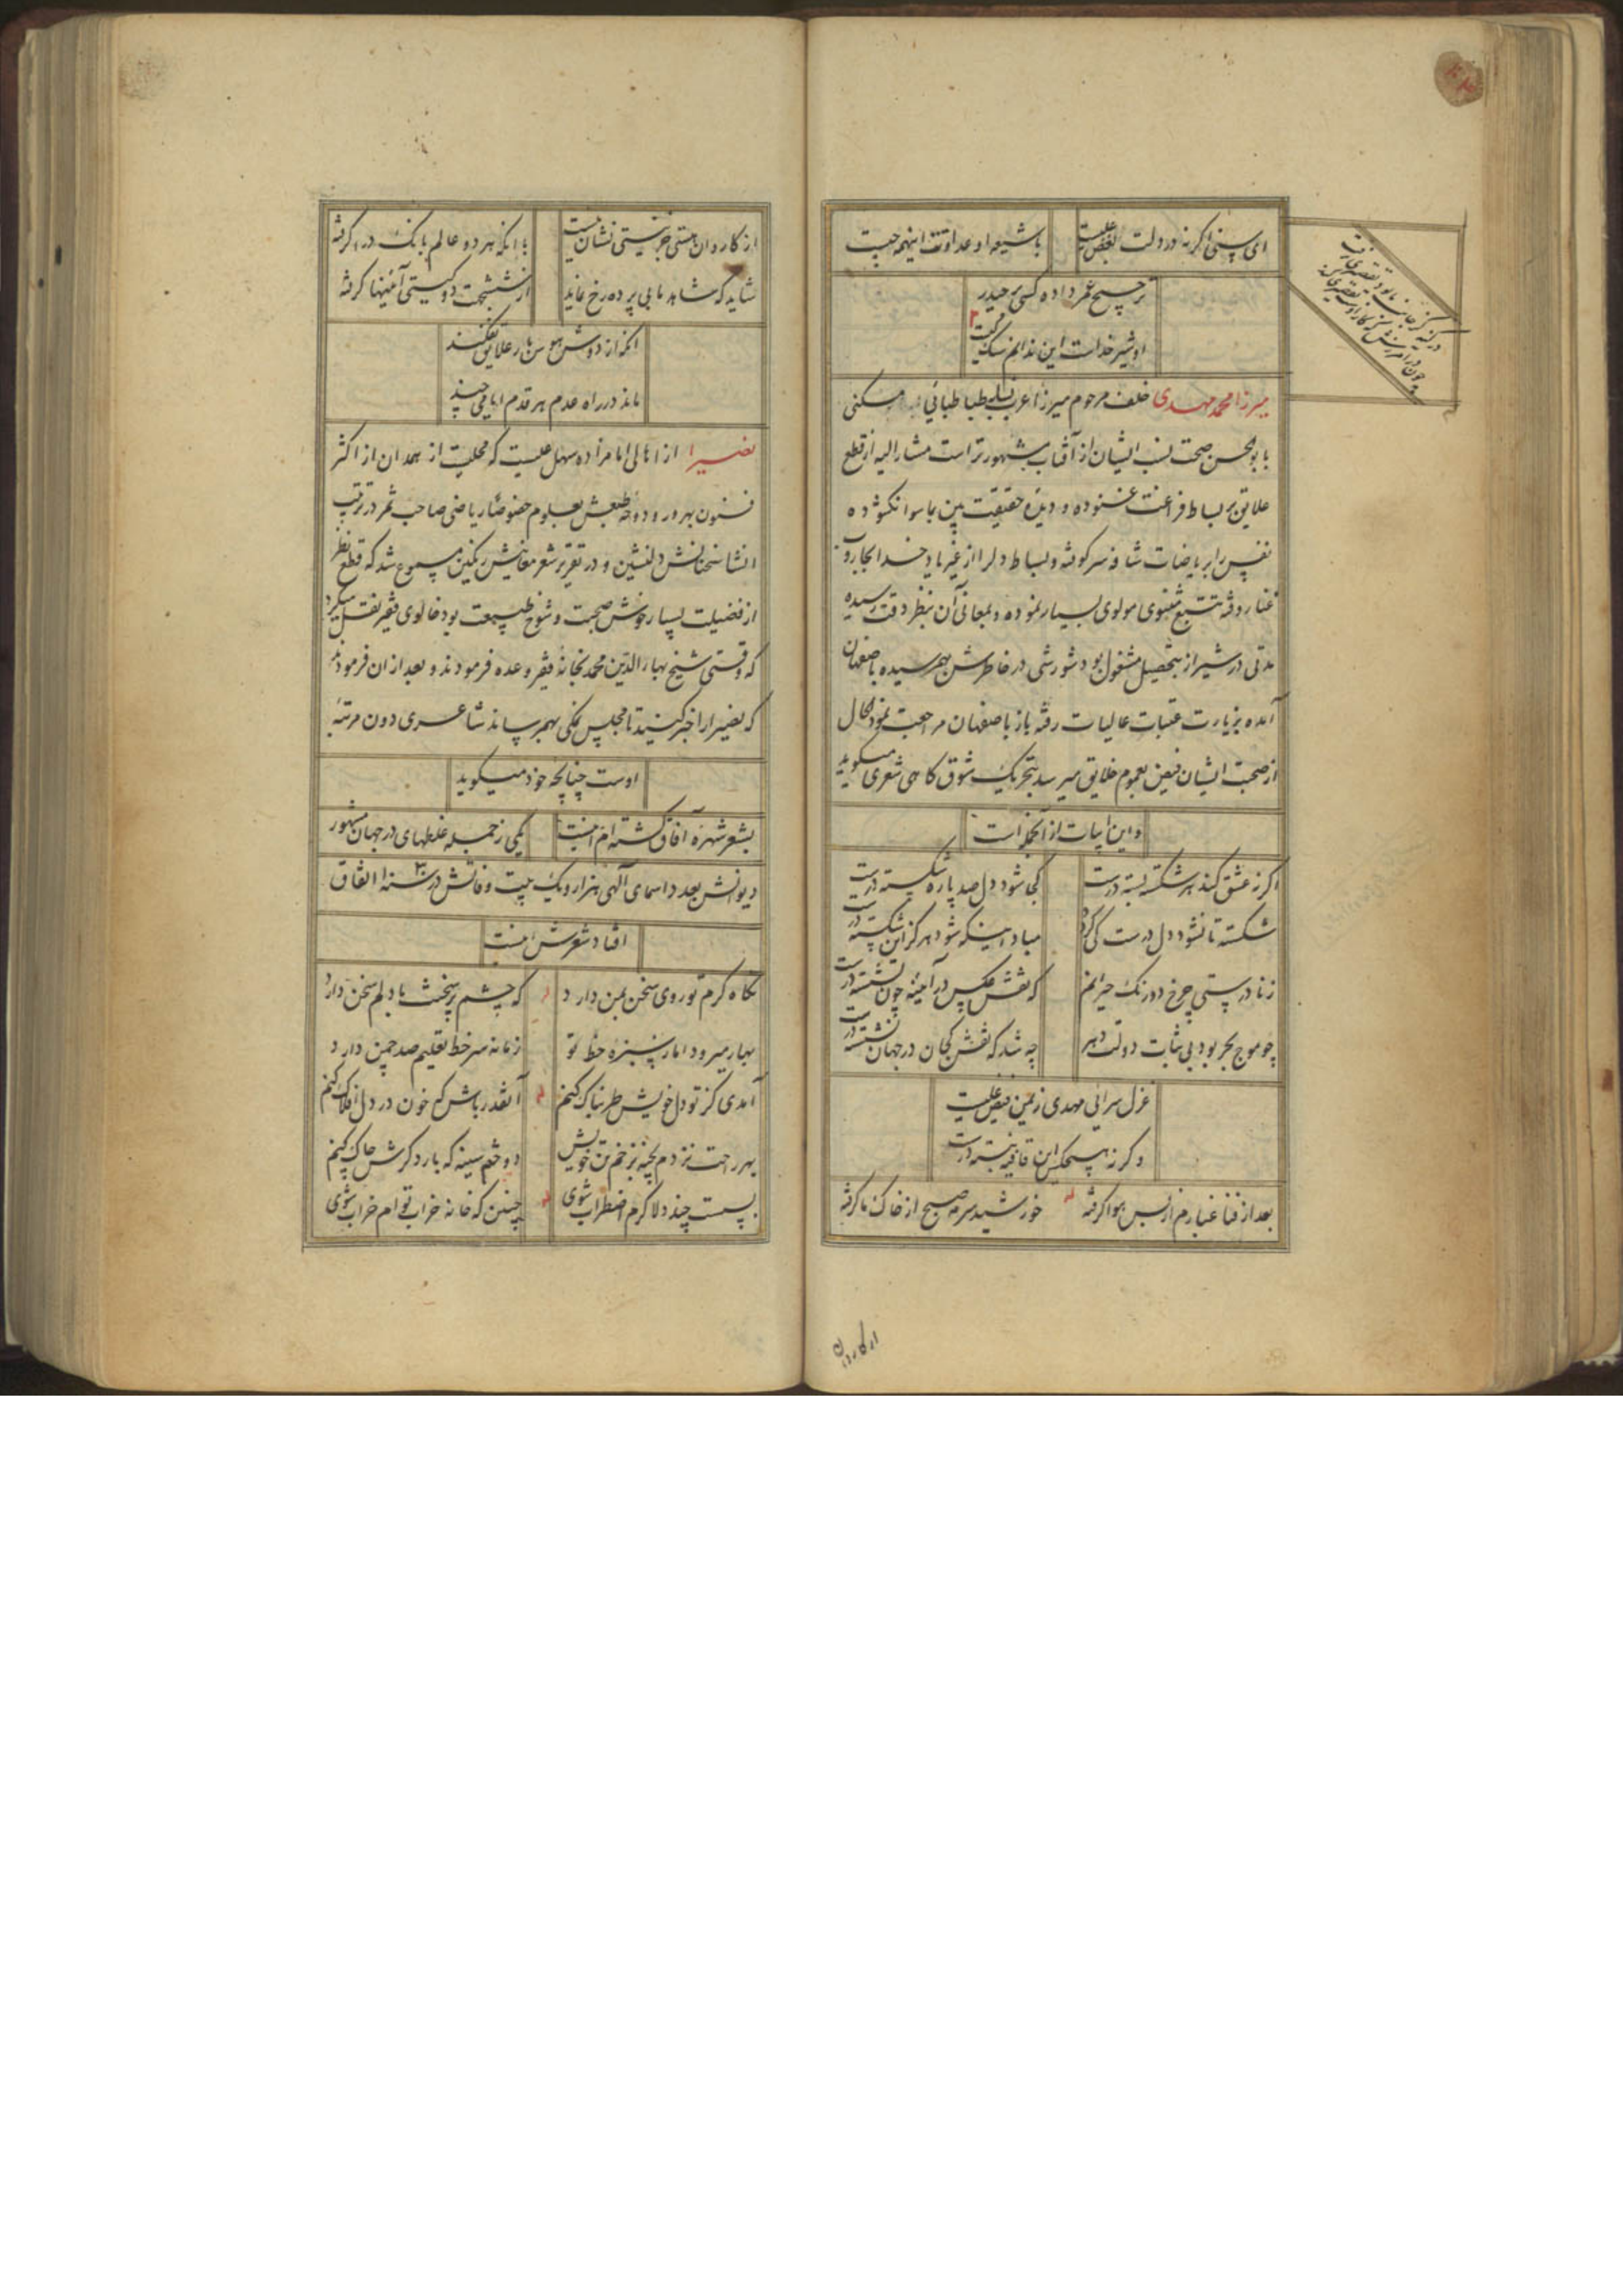 ای سنی اگر نه در دلت بغض علیست
با شیعه او عداوتت اینهمه چیست
ترجیح عمر داده کسی بر حیدر
او شیر خداست این ندانم سگ کیست
میرزا محمد مهدی خلف مرحوم میرزا عرب طباطبائی مسکنی
بابوالحسن صحت نسب ایشان از آفتاب مشهورتر است مشار الیه از قطع
علایق بر بساط فراغت غنوده و دیده حقیقت بین بماسوا نکشوده
نفس را بریاضات شاقه سرکوفته و بساط دلرا از غیر یاد خدا بجاروب
غنا روفته تتبع مثنوی مولوی بسیار نموده و بمعانی آن بنظر دقت رسیده
مدتی در شیراز بتحصیل مشغول بود شورشی در خاطرش بهم رسیده باصفهان
آمده بزیارت عتبات عالیات رفته باز باصفهان مراجعت نمود الحال
از صحبت ایشان فیض بعموم خلایق میرسد بتحریک شوق گاهی شعری میگوید
و این ابیات از آنجمله است
اگر نه عشق کند هر شکسته بسته درست
کجا شود دل صد پاره شکسته درست
شکسته تا نشود دل درست کی گردد
مباد اینکه شود هرگز این شکسته درست
ز نادرستی چرخ دو رنگ حیرانم
که نقش عکس در آینه چون نشسته درست
چو موج بحر بود بی ثبات دولت دهر
چه شد که نقش کجان در جهان نشسته درست
غزل سرائی مهدی ز یمن فیض علیست
وگر نه هیچکس این قافیه نبسته درست
بعد از فنا غبارم از بس هوا گرفته
خورشید سرمه صبح از خاک ما گرفته
از کاروان
از کاروان هستی جز نیستی نشان نیست
با آنکه هر دو عالم بانگ درا گرفته
شاید که شاهد ما بی پرده رخ نماید
از ششجهت دو گیتی آئینها گرفته
آنکه از دوش هوس بار علایق نفکند
ماند در راه عدم هر قدم امامی چند
نصیرا از اهالی امامزاده سهل علیست که محلیست از همدان از اکثر
فنون بهره ور و دوحه طبعش بعلوم خصوصا ریاضی صاحب ثمر در ترتیب
انشا سخنانش دلنشین و در تقریر شعر معانیش رنگین مسموع شد که قطع نظر
از فضیلت بسیار خوش صحبت و شوخ طبیعت بود خالوی فقیر نقل میکرد
که وقتی شیخ بهاء الدین محمد بخانه فقیر وعده فرمودند و بعد از آن فرمودند
که نصیرا را خبر کنید تا مجلس نمکی بهم رساند شاعری دون مرتبه
اوست چنانچه خود میگوید
بشعر شهره آفاق گشته ام اینست
یکی ز جمله غلطهای در جهان مشهور
دیوانش بعدد اسمای الهی هزار و یک بیت و فاتش در سنه ۱۰۳۰ اتفاق
افتاد شعرش اینست
نگاه گرم تو روی سخن بمن دارد
که چشم پر سخنت با دلم سخن دارد
بهار میرود اما ز سبزه خط تو
زمانه سر خط تعلیم صد چمن دارد
آمدی کز تو دل خویش طربناک کنم
آنقدر باش که خون در دل افلاک کنم
بهر راحت نزدم بخیه بزخم تن خویش
دوختم سینه که بار دگرش چاک کنم
بسست چند دلا گرم اضطراب شوی
چنین که خانه خراب تو ام خراب شوی